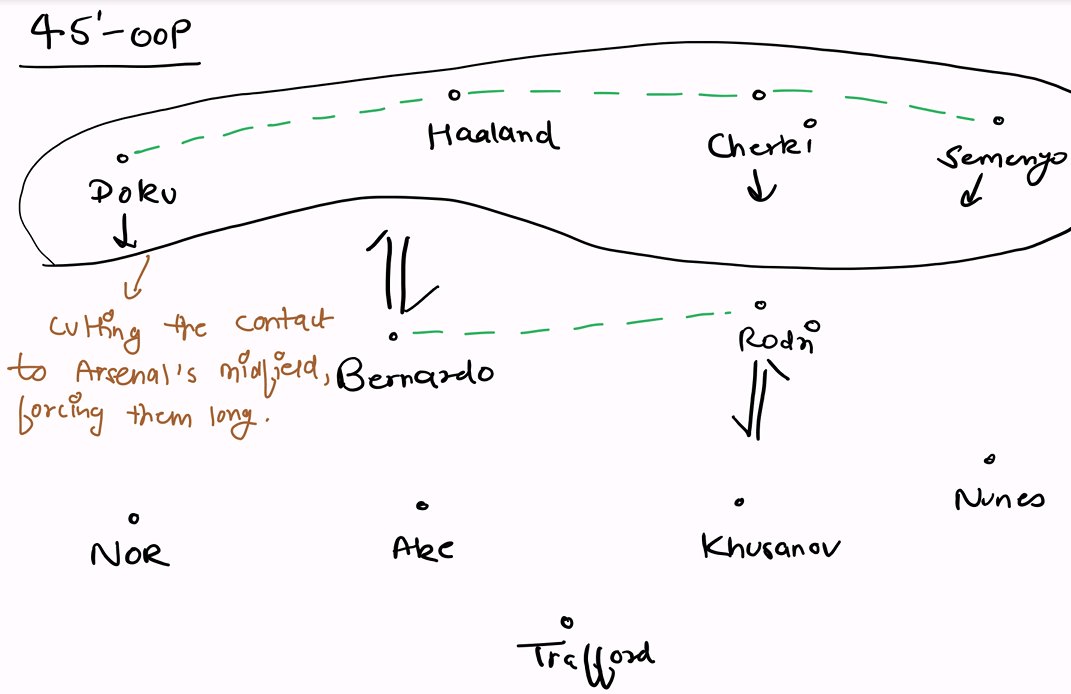 45'-OOP
Haaland
Cherki
Semenyo
Doku
cutting the contact
to Arsenal's midfield,
forcing them long.
Bernardo
Rodri
Nunes
NOR
Ake
Khusanov
Trafford